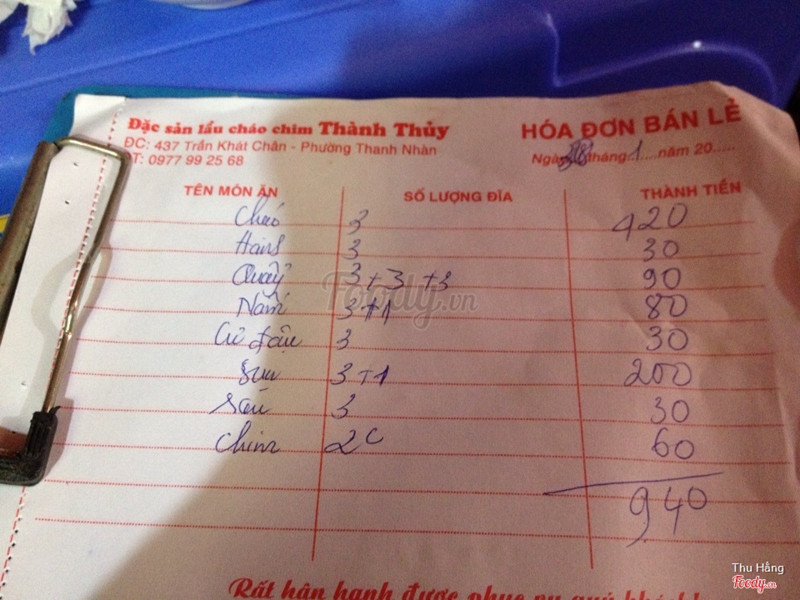 Đặc sản lẩu cháo chim Thành Thủy
HÓA ĐƠN BÁN LẺ
ĐC: 437 Trần Khát Chân - Phường Thanh Nhàn
ĐT: 0977 99 25 68
Ngày tháng 1 năm 20.....
TÊN MÓN ĂN SỐ LƯỢNG ĐĨA THÀNH TIỀN
Cháo 3 420
3 30
Quẩy 3+3+3 90
Nấm 3+1 80
Củ đậu 3 30
3+1 200
Sấu 3 30
Chim 2c 60
940
Foody.vn
Rất hân hạnh được phục vụ quý khách!
Thu Hằng
Foody.vn